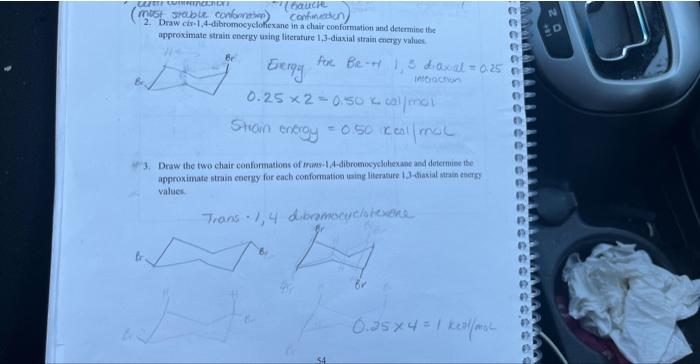 Gauche
(most stable conformation) conformation)
2. Draw cis-1,4-dibromocyclohexane in a chair conformation and determine the
approximate strain energy using literature 1,3-diaxial strain energy values.
Br
Br
Energy for Br-H 1,3 diaxial = 0.25
interaction
0.25 x 2 = 0.50 kcal/mol
Strain energy = 0.50 kcal/mol
3. Draw the two chair conformations of trans-1,4-dibromocyclohexane and determine the
approximate strain energy for each conformation using literature 1,3-diaxial strain energy
values.
Trans - 1,4 dibromocyclohexane
Br
Br
Br
Br
0.25 x 4 = 1 kcal/mol
54
N
D